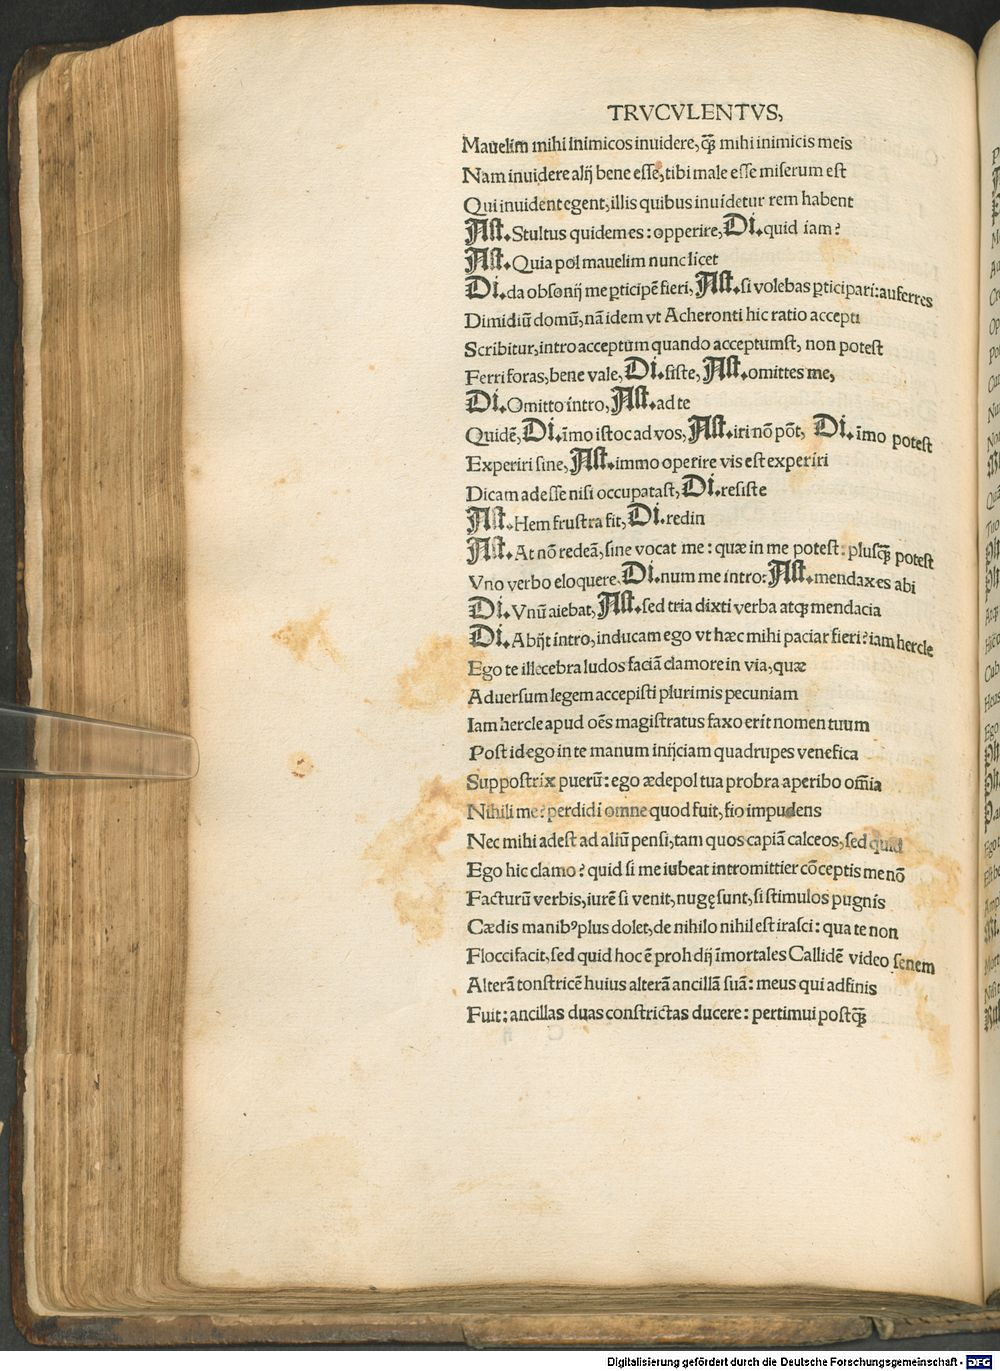 TRVCVLENTVS,
Mauelim mihi inimicos inuidere, q̃ꝫ mihi inimicis meis
Nam inuidere alij bene esse, tibi male esse miserum est
Qui inuident egent, illis quibus inuidetur rem habent
Ast. Stultus quidem es: opperire, Di. quid iam?
Ast. Quia pol mauelim nunc licet
Di. da obsonij me ꝑticipẽ fieri, Ast. si volebas ꝑticipari: auferres
Dimidiũ domũ, nã idem vt Acheronti hic ratio accepti
Scribitur, intro acceptum quando acceptumst, non potest
Ferri foras, bene vale, Di. siste, Ast. omittes me,
Di. Omitto íntro, Ast. ad te
Quidẽ, Di. ĩmo istoc ad vos, Ast. iri nõ põt, Di. ĩmo potest
Experiri sine, Ast. immo operire vis est experiri
Dicam adesse nisi occupatast, Di. resiste
Ast. Hem frustra fit, Di. redin
Ast. At nõ redeã, sine vocat me: quæ in me potest: plusq̃ꝫ potest
Vno verbo eloquere. Di. num me intro: Ast. mendax es abi
Di. Vnũ aiebat, Ast. sed tria dixti verba atqꝫ mendacia
Di. Abijt íntro, inducam ego vt hæc mihi paciar fieri? iam hercle
Ego te illecebra ludos faciã clamore in via, quæ
Aduersum legem accepisti plurimis pecuniam
Iam hercle apud oẽs magistratus faxo erit nomen tuum
Post id ego in te manum inijciam quadrupes venefica
Suppostrix puerũ: ego ædepol tua probra aperibo om̃ia
Nihili me? perdidi omne quod fuit, fio impudens
Nec mihi adest ad aliũ pensi, tam quos capiã calceos, sed quid
Ego hic clamo? quid si me iubeat intromittier cõceptis me nõ
Facturũ verbis, iurẽ si venit, nugę sunt, si stimulos pugnis
Cædis manibꝰ plus dolet, de nihilo nihil est irasci: qua te non
Flocci facit, sed quid hoc ẽ proh dij ĩmortales Callidẽ video senem
Alterã tonstricẽ huius alterã ancillã suã: meus qui adfinis
Fuit: ancillas duas constrictas ducere: pertimui postq̃ꝫ
Digitalisierung gefördert durch die Deutsche Forschungsgemeinschaft - DFG